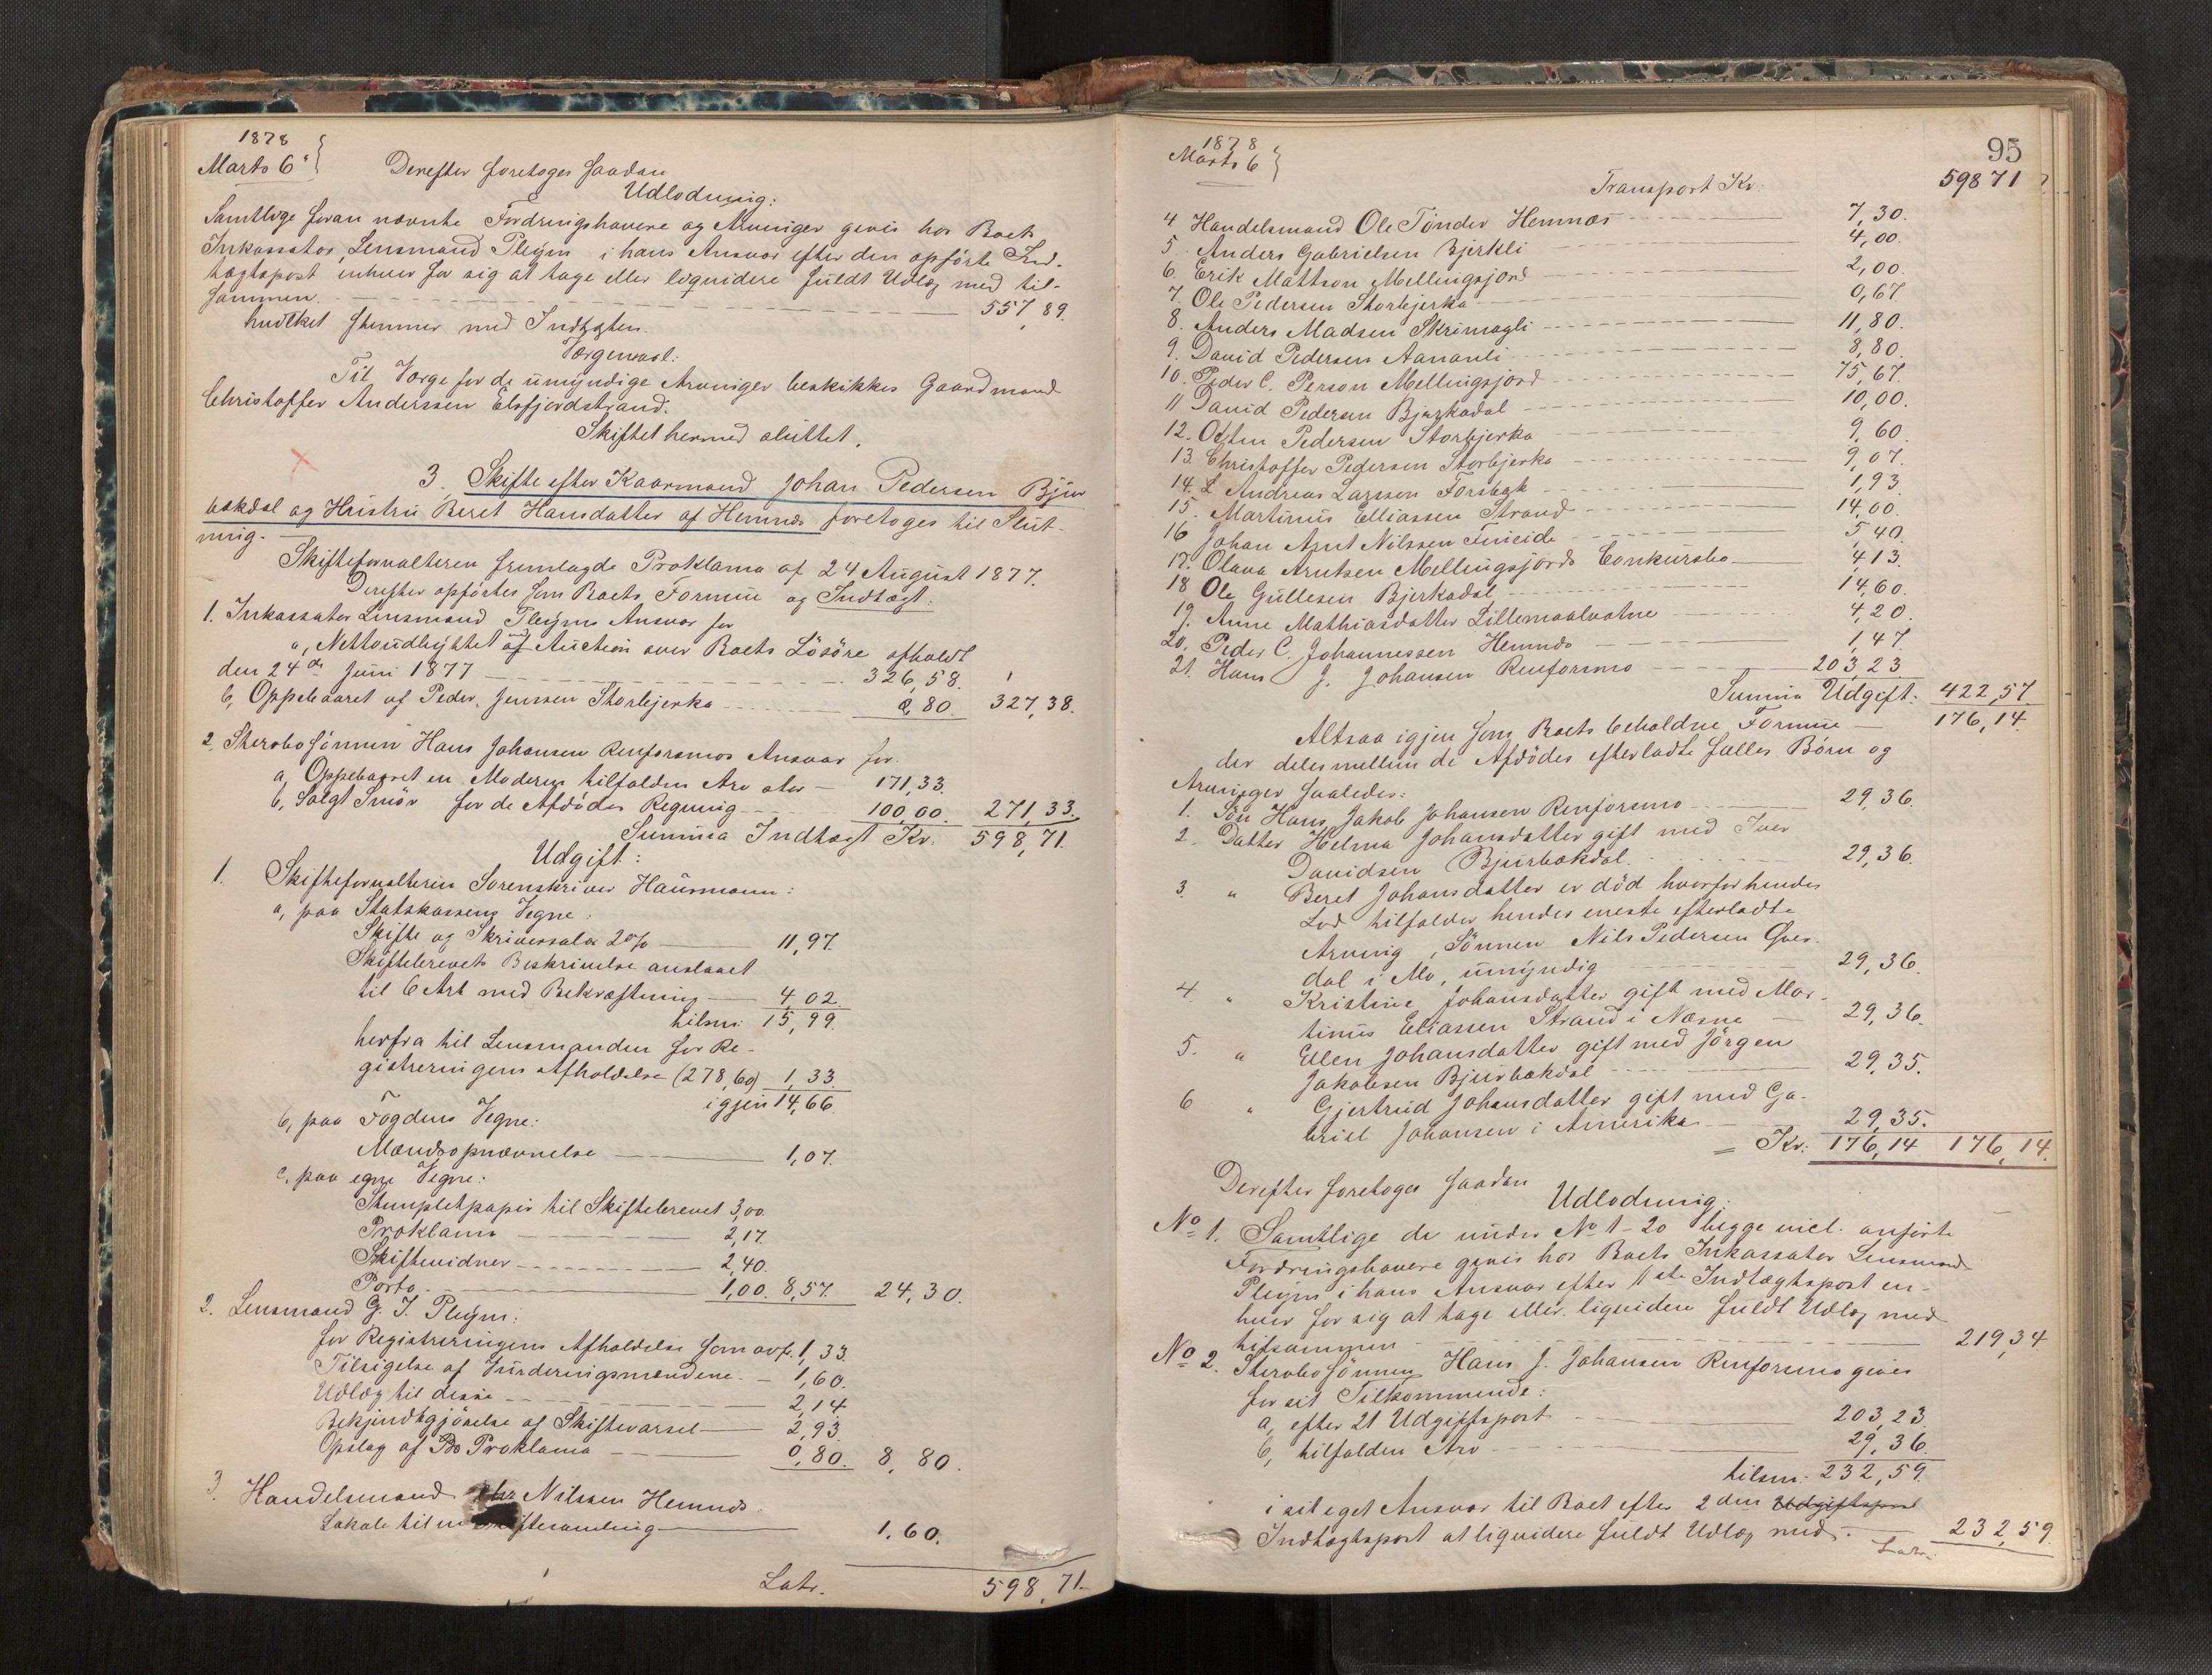 1878
Marts 6.
Derefter foretoges saadan
Udlodning:
Samtlige foran nævnte Fordringshavere og Arvinger gives hos Boets
Inkassator, Lensmand Pleym i hans Ansvar efter den opførte Ind-
tægtspost enhver for sig at tage eller liquidere fuldt Udlæg med til-
sammen 557,89.
hvilket stemmer med Indtægten.
Værgemaal:
Til Værge for de umyndige Arvinger beskikkes Gaardmand
Christoffer Anderssen Elsfjordstrand.
Skiftet hermed sluttet.
3. Skifte efter Kaarmand Johan Pedersen Bjur
bækdal og Hustru Beret Hansdatter af Hemnæs foretoges til Slut-
ning.
Skifteforvalteren fremlagde Proklama af 24 August 1877.
Derefter opførtes som Boets Formue og Indtægt:
1. Inkassator Lensmand Pleyms Ansvar for
a, Nettoudbyttet af Auction over Boets Løsøre afholdt
den 24de Juni 1877 326,58.
b, Oppebaaret af Peder Jenssen Storbjerka 0,80. 327,38.
2. Sterbosønnen Hans Johansen Renforsmos Ansvar for
a, Oppebaaret en Moderen tilfalden Arv stor 171,33.
b, Solgt Smør for de Afdødes Regning 100,00. 271,33.
Summa Indtægt Kr. 598,71.
Udgift:
1. Skifteforvalteren Sorenskriver Hausmann:
a, paa Statskassens Vegne:
Skifte og Skriversalær 2% 11,97.
Skiftebrevets Beskrivelse anslaaet
til 6 Ark med Bekræftning 4,02.
tilsm: 15,99.
herfra til Lensmanden for Re-
gistreringens Afholdelse (278,60) 1,33.
igjen 14,66.
b, paa Fogdens Vegne:
Mændsopnævnelse 1,07.
c, paa egne Vegne:
Stempletpapir til Skiftebrevet 3,00.
Proklama 2,17.
Skiftevidner 2,40.
Porto 1,00. 8,57. 24,30.
2. Lensmand G. J. Pleym:
for Registreringens Afholdelse som ovf. 1,33.
Tilsigelse af Vurderingsmændene 1,60.
Udlæg til disse 2,14.
Bekjendtgjørelse af Skiftevarsel 2,93.
Opslag af Proklama 0,80. 8,80.
3. Handelsmand Nilssen Hemnæs
Lokale til en Skiftesamling 1,60.
Latr. 598,71.
95
1878
Marts 6
Transport Kr: 598 71
4 Handelsmand Ole Tønder Hemnæs 7,30.
5. Anders Gabrielsen Bjerkli 4,00.
6. Erik Mattson Mellingsjord 2,00.
7. Ole Pedersen Storbjerka 0,67.
8. Anders Madsen Skrimagli 11,80.
9. David Pedersen Aananli 8,80.
10. Peder C. Person Mellingsjord 75,67.
11 David Pedersen Bjerkadal 10,00.
12. Osten Pedersen Storbjerka 9,60.
13. Christoffer Pedersen Storbjerka 9,07.
14. L Andreas Larssen Forsbæk 1,93.
15. Martinus Elliassen Strand 14,00.
16 Johan Arnt Nilssen Fineide 5,40.
17. Olava Arntsen Mellingsjords Conkursbo 4,13.
18 Ole Gullesen Bjerkadal 14,60.
19. Anne Mathiasdatter Lillemoalvatne 4,20.
20. Peder C. Johannessen Hemnæs 1,47.
21. Hans J. Johansen Renforsmo 203,23.
Summa Udgift: 422,57.
Altsaa igjen som Boets beholdne Formue 176,14.
der deles mellem de Afdødes efterladte fælles Børn og
Arvinger saaledes:
1. Søn Hans Jakob Johansen Renforsmo 29,36.
2. Datter Helma Johansdatter gift med Iver
Davidsen Bjurbækdal 29,36.
3. " Beret Johansdatter er død hvorfor hendes
Lod tilfalder hendes eneste efterladte
Arving, Sønnen Nils Pedersen Gres-
dal i Mo, umyndig 29,36.
4. " Kristine Johansdatter gift med Mar-
tinus Eliassen Strand i Næsne 29,36.
5. " Ellen Johansdatter gift med Jørgen
Jakobsen Bjurbækdal 29,35.
6 " Gjertrud Johansdatter gift med Ga-
briel Johansen i Amerika 29,35.
= Kr: 176,14 176,14.
Derefter foretoges saadan
Udlodning:
No 1. Samtlige de under No 1-20 begge incl. anførte
Fordringshavere gives hos Boets Inkassator Lensmand
Pleym i hans Ansvar efter 1ste Indtægtspost en-
hver for sig at tage eller liquidere fuldt Udlæg med
tilsammen 219,34
No 2. Sterbosønnen Hans J. Johansen Renforsmo gives
for sit Tilkommende:
a, efter 21 Udgiftspost 203,23.
b, tilfalden Arv 29,36.
tilsm: 232,59.
i sit eget Ansvar til Boet efter 2den Udgiftspost
Indtægtspost at liquidere fuldt Udlæg med 232,59.
Latr.